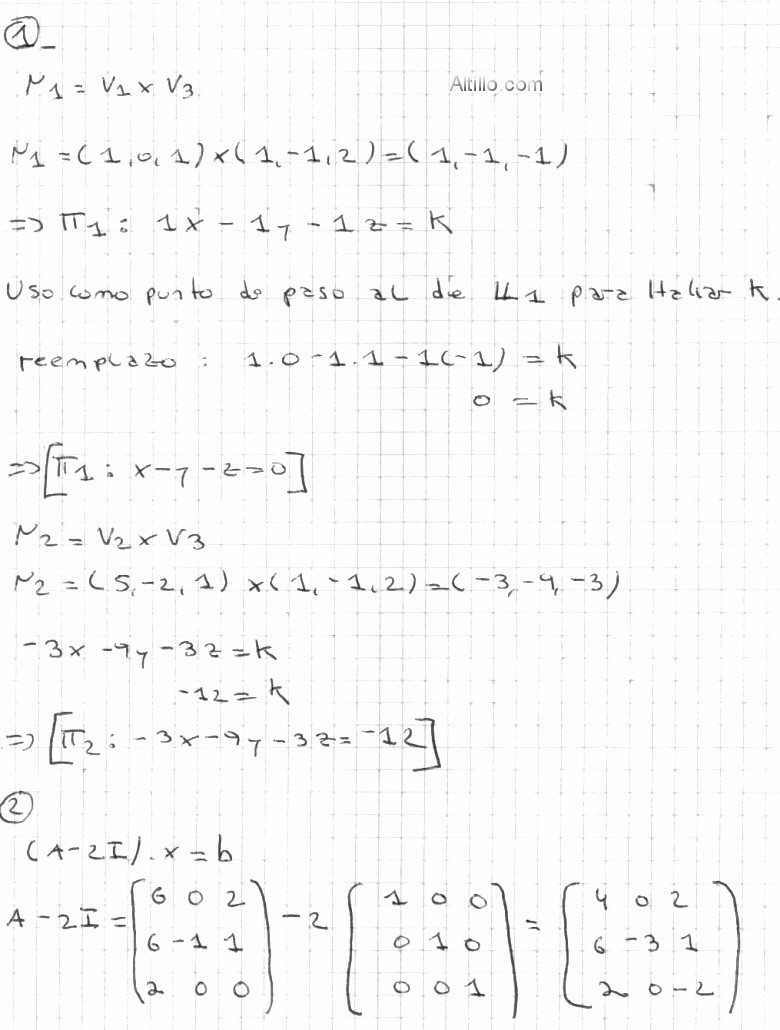 ①_
N1 = V1 x V3
Altillo.com
N1 = (1,0,1) x (1,-1,2) = (1,-1,-1)
=> π1 : 1x - 1y - 1z = K
Uso como punto de paso al de L1 para Hallar K.
reemplazo : 1.0 - 1.1 - 1(-1) = k
0 = k
=> [π1 : x - y - z = 0]
N2 = V2 x V3
N2 = (5,-2,1) x (1,-1,2) = (-3,-9,-3)
-3x - 9y - 3z = k
-12 = k
=> [π2 : -3x - 9y - 3z = -12]
②
(A-2I).x = b
A - 2I = (6 0 2) - 2 (1 0 0) = (4 0 2)
(6 -1 1) (0 1 0) (6 -3 1)
(2 0 0) (0 0 1) (2 0 -2)